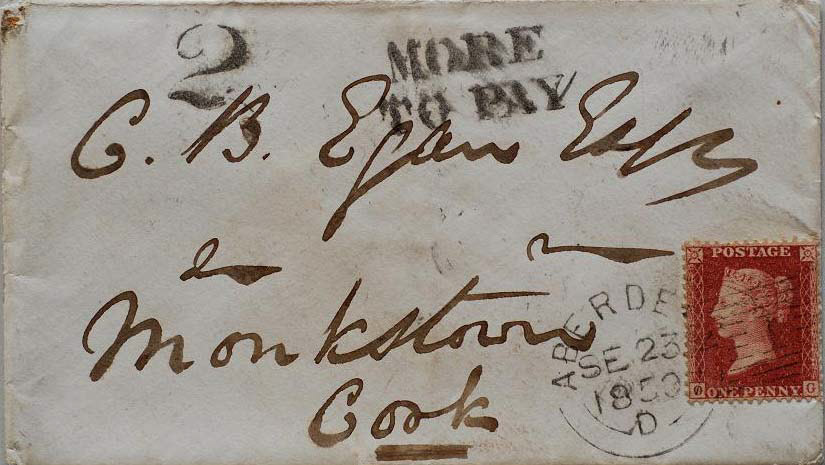 2
MORE
TO PAY
C. B. Egan Esqr
Monkstown
Cork
ABERDE
SE 23
1859
D
POSTAGE
ONE PENNY
G